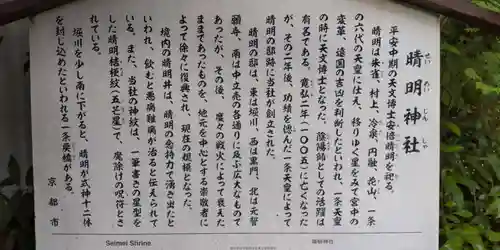 晴明神社
せいめいじんじゃ
平安中期の天文博士安倍晴明を祀る。
晴明は朱雀、村上、冷泉、円融、花山、一条
の六代の天皇に仕え、移りゆく星をみて宮中の
変革、遠国の吉凶を判断したといわれ、一条天皇
の時に天文博士となった。陰陽師としての活躍は
有名である。寛弘二年(一〇〇五)に亡くなった
が、その二年後、功績を偲んだ一条天皇によって
晴明の邸跡に当社が創立された。
晴明の邸は、東は堀川、西は黒門、北は元誓
願寺、南は中立売の各通りに及ぶ広大なもので
あったが、その後、度々の戦火によって衰えた
ままであったものを、地元を中心とする崇敬者に
よって徐々に復興され、現在の規模となった。
境内の晴明井は、晴明の念持力で湧き出たと
いわれ、飲むと悪病難病が治ると伝えられて
いる。また、当社の神紋は、一筆書きの星型を
した晴明桔梗紋(五芒星)で、魔除けの呪符とさ
れている。
堀川を少し南に下がると、晴明が式神十二体
を封じ込めたといわれる一条戻橋がある。
京都市
Seimei Shrine
晴明神社